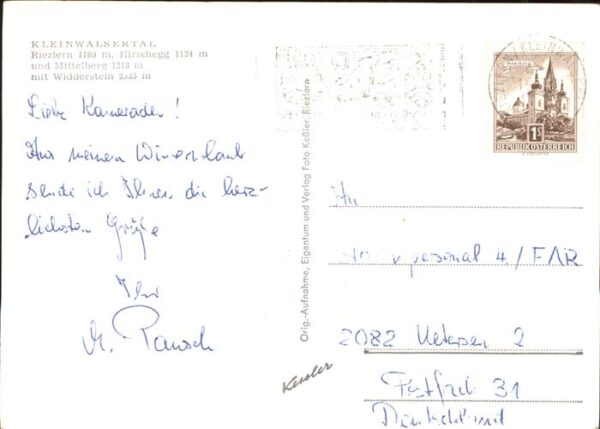 KLEINWALSERTAL
Riezlern 1100 m, Hirschegg 1124 m
und Mittelberg 1218 m
mit Widderstein 2533 m
Liebe Kameraden!
Aus meinem Winterurlaub
sende ich Ihnen die herz-
lichsten Grüße
Ihr
Orig.-Aufnahme, Eigentum und Verlag Foto Keßler, Riezlern
Kessler
1S
REPUBLIK ÖSTERREICH
An
personal 4./FAR
2082 Uetersen 2
Postfach 31
Deutschland